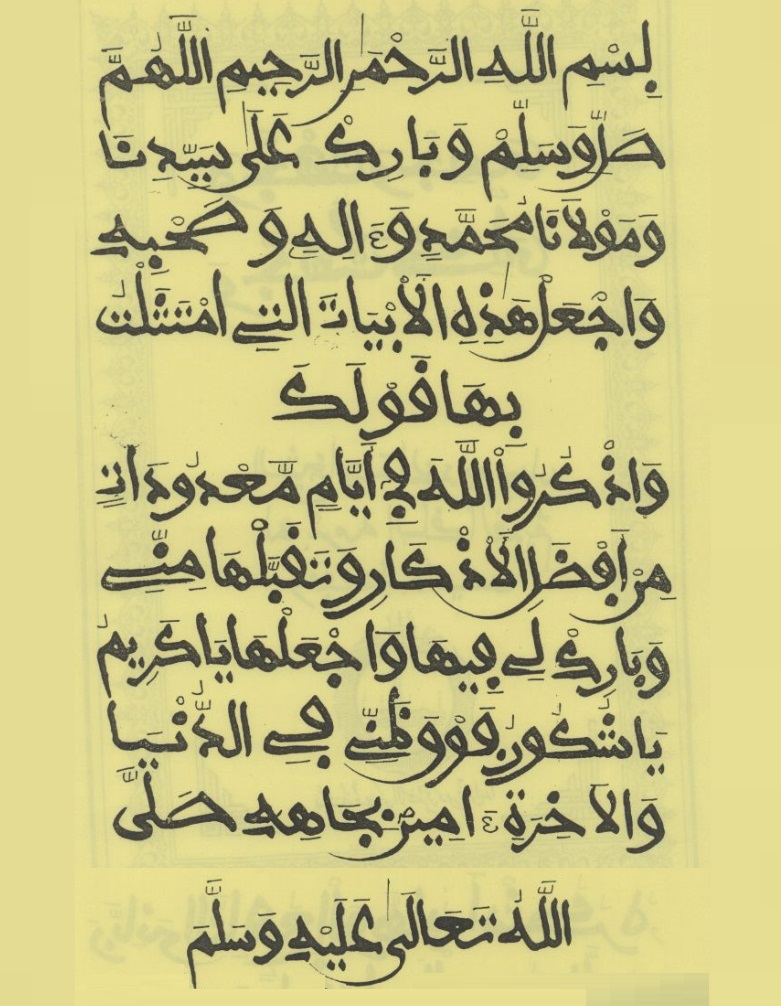 بِسْمِ اللَّهِ الرَّحْمَنِ الرَّحِيمِ اللَّهُمَّ
صَلِّ وَسَلِّمْ وَبَارِكْ عَلَى سَيِّدِنَا
وَمَوْلَانَا مُحَمَّدٍ وَءَالِهِ وَصَحْبِهِ
وَاجْعَلْ هَذِهِ الْأَبْيَاتَ الَّتِي امْتَثَلْتُ
بِهَا قَوْلَكَ
وَاذْكُرُوا اللَّهَ فِي أَيَّامٍ مَّعْدُودَاتٍ
مِنْ أَفْضَلِ الْأَذْكَارِ وَتَقَبَّلْهَا مِنِّي
وَبَارِكْ لِي فِيهَا وَاجْعَلْهَا يَا كَرِيمُ
يَا شَكُورُ فَوْقَ ظَنِّي فِي الدُّنْيَا
وَالْآخِرَةِ ءَامِينَ بِجَاهِهِ صَلَّى
اللَّهُ تَعَالَى عَلَيْهِ وَسَلَّمَ